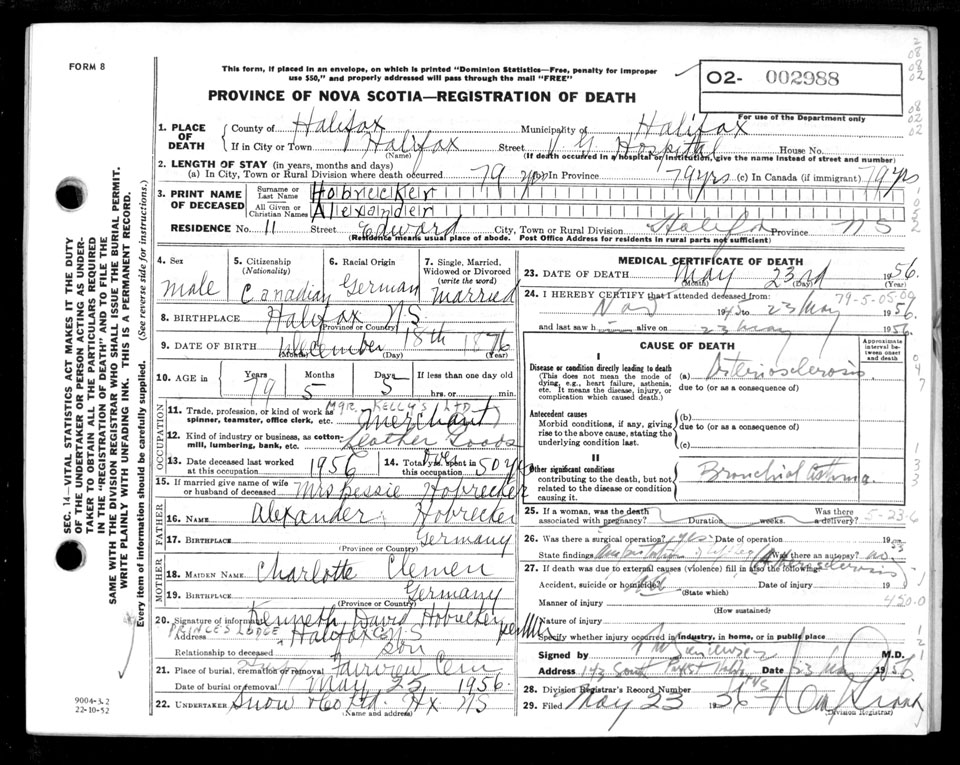 FORM 8
This form, if placed in an envelope, on which is printed "Dominion Statistics—Free, penalty for improper
use $50," and properly addressed will pass through the mail "FREE"
02- 002988
For use of the Department only
PROVINCE OF NOVA SCOTIA—REGISTRATION OF DEATH
1. PLACE OF DEATH { County of Halifax Municipality of Halifax
If in City or Town Halifax (Name) Street V G Hospital House No.
(If death occurred in a hospital or institution, give the name instead of street and number)
2. LENGTH OF STAY (in years, months and days)
(a) In City, Town or Rural Division where death occurred 79 yrs (b) in Province 79 yrs (c) In Canada (if immigrant) 79 yrs
3. PRINT NAME OF DECEASED { Surname or Last Name Hobrecker
All Given or Christian Names Alexander
RESIDENCE No. 11 Street Edward City, Town or Rural Division Halifax Province NS
(Residence means usual place of abode. Post Office Address for residents in rural parts not sufficient)
4. Sex
male
5. Citizenship (Nationality)
Canadian
6. Racial Origin
German
7. Single, Married, Widowed or Divorced (write the word)
married
8. BIRTHPLACE Halifax NS
(Province or Country)
9. DATE OF BIRTH December 18th 1876
(Month) (Day) (Year)
10. AGE in { Years Months Days If less than one day old
79 5 5 hrs. or min.
OCCUPATION
11. Trade, profession, or kind of work as spinner, teamster, office clerk, etc. MGR. KELLYS LTD. Merchant
12. Kind of industry or business, as cotton mill, lumbering, bank, etc. Leather Goods
13. Date deceased last worked at this occupation 1956
14. Total yrs. spent in this occupation 50 yrs
15. If married give name of wife or husband of deceased Mrs Bessie Hobrecker
FATHER
16. NAME Alexander Hobrecker
17. BIRTHPLACE Germany
(Province or Country)
MOTHER
18. MAIDEN NAME Charlotte Clemen
19. BIRTHPLACE Germany
(Province or Country)
20. Signature of informant Kenneth David Hobrecker
Address PRINCES LODGE Halifax Co NS
Relationship to deceased son
21. Place of burial, cremation or removal Fairview Cem
Date of burial or removal May 25 1956
22. UNDERTAKER Snow & Co Ltd. Hx NS
(Name and address)
MEDICAL CERTIFICATE OF DEATH
23. DATE OF DEATH May 23rd 1956.
(Month) (Day) (Year)
79-5-05-09
24. I HEREBY CERTIFY that I attended deceased from:
Nov 1945 to 23 May 1956
and last saw h alive on 23 May 1956.
CAUSE OF DEATH
Approximate interval between onset and death
I
Disease or condition directly leading to death
(This does not mean the mode of dying, e.g., heart failure, asthenia, etc. It means the disease, injury, or complication which caused death.)
(a) Arteriosclerosis
due to (or as a consequence of)
Antecedent causes
Morbid conditions, if any, giving rise to the above cause, stating the underlying condition last.
(b)
due to (or as a consequence of)
(c)
II
Other significant conditions
contributing to the death, but not related to the disease or condition causing it.
Bronchial Asthma.
25. If a woman, was the death associated with pregnancy? Duration weeks. Was there a delivery? 5-23-6
26. Was there a surgical operation? yes Date of operation 1953
State findings Was there an autopsy? no
27. If death was due to external causes (violence) fill in also the following:
Arteriosclerosis
Accident, suicide or homicide? Date of injury 19
(State which)
Manner of injury 450.0
(How sustained)
Nature of injury
Specify whether injury occurred in industry, in home, or in public place
Signed by M.D.
Address 143 South Park St Halifax Date 23 May 1956.
28. Division Registrar's Record Number
29. Filed May 23 1956
(Division Registrar)
SEC. 14—VITAL STATISTICS ACT MAKES IT THE DUTY
OF THE UNDERTAKER OR PERSON ACTING AS UNDER-
TAKER TO OBTAIN ALL THE PARTICULARS REQUIRED
IN THE "REGISTRATION OF DEATH" AND TO FILE THE
SAME WITH THE DIVISION REGISTRAR WHO SHALL ISSUE THE BURIAL PERMIT.
WRITE PLAINLY WITH UNFADING INK. THIS IS A PERMANENT RECORD.
Every item of information should be carefully supplied. (See reverse side for instructions.)
9004-3.2
22-10-52